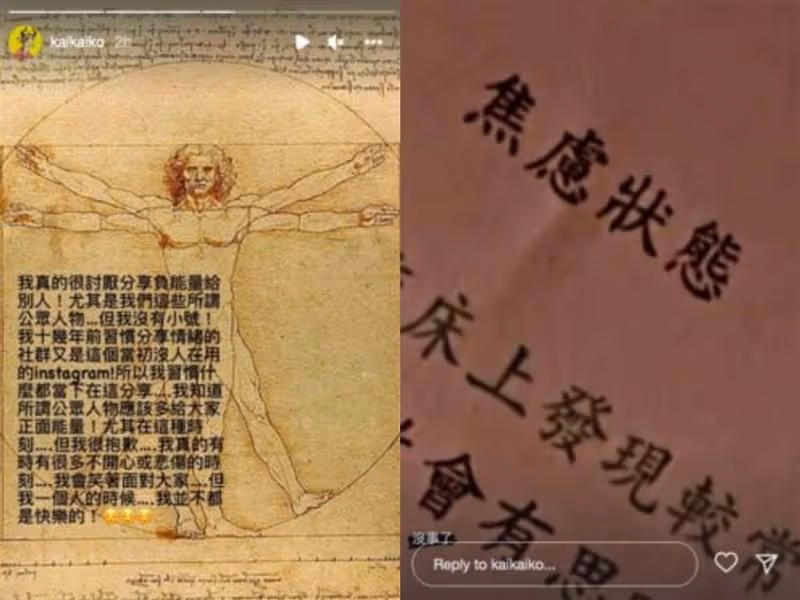 kaikaiko 2h
我真的很討厭分享負能量給
別人！尤其是我們這些所謂
公眾人物...但我沒有小號！
我十幾年前習慣分享情緒的
社群又是這個當初沒人在用
的instagram!所以我習慣什
麼都當下在這分享....我知道
所謂公眾人物應該多給大家
正面能量！尤其在這種時
刻....但我很抱歉....我真的有
時有很多不開心或悲傷的時
刻....我會笑著面對大家....但
我一個人的時候....我並不都
是快樂的！
焦慮狀態
床上發現較常
會有思
沒事了
Reply to kaikaiko...